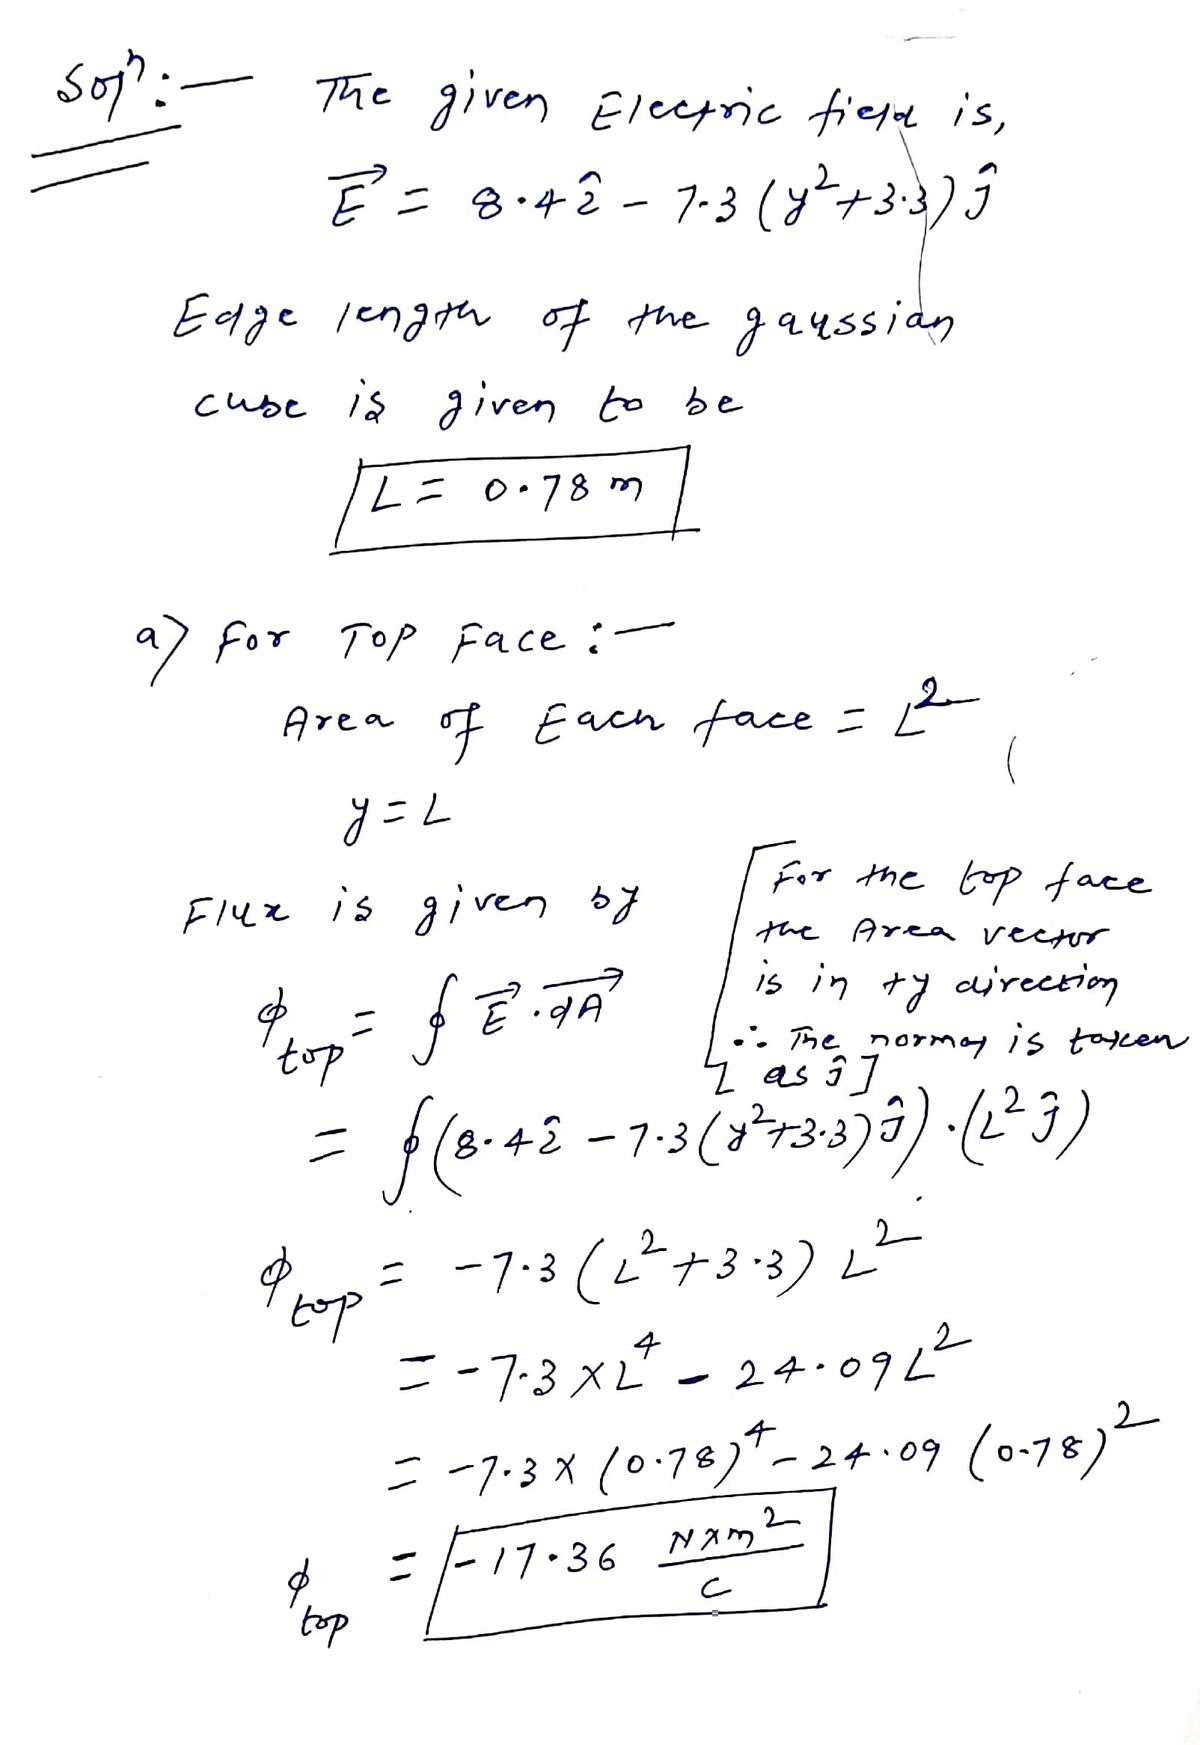 Solⁿ :—
The given Electric field is,
E⃗ = 8.4 î − 7.3 (y²+3.3) ĵ
Edge length of the gaussian
cube is given to be
L = 0.78 m
a) For Top Face :—
Area of Each face = L²
y = L
Flux is given by
[For the top face
the Area vector
is in +y direction
∴ The normal is taken
as ĵ]
ϕ_top = ∮ E⃗ . dA⃗
= ∮ (8.4 î − 7.3 (y²+3.3) ĵ) . (L² ĵ)
ϕ_top = −7.3 (L²+3.3) L²
= −7.3 × L⁴ − 24.09 L²
= −7.3 × (0.78)⁴ − 24.09 (0.78)²
ϕ_top = −17.36 N×m²/C